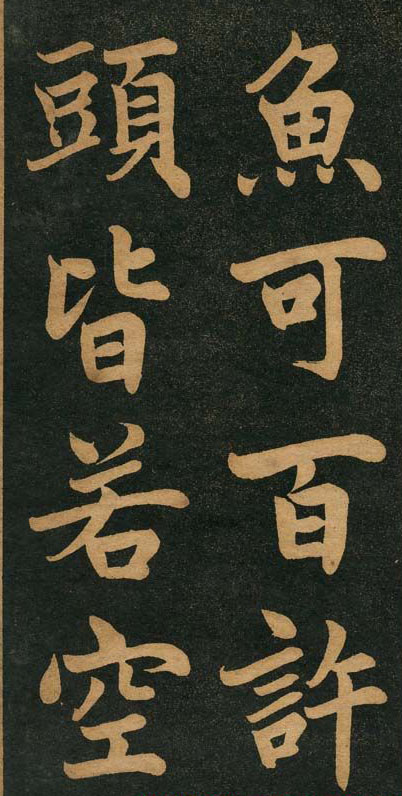 魚可百許
頭皆若空